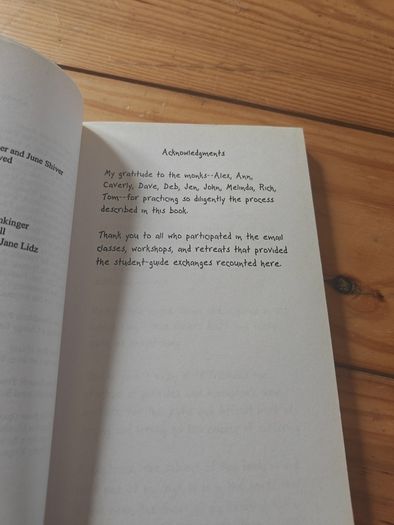 er and June Shiver
ved
nkinger
ll
Jane Lidz
Acknowledgments
My gratitude to the monks--Alex, Ann,
Caverly, Dave, Deb, Jen, John, Melinda, Rich,
Tom--for practicing so diligently the process
described in this book.
Thank you to all who participated in the email
classes, workshops, and retreats that provided
the student-guide exchanges recounted here.